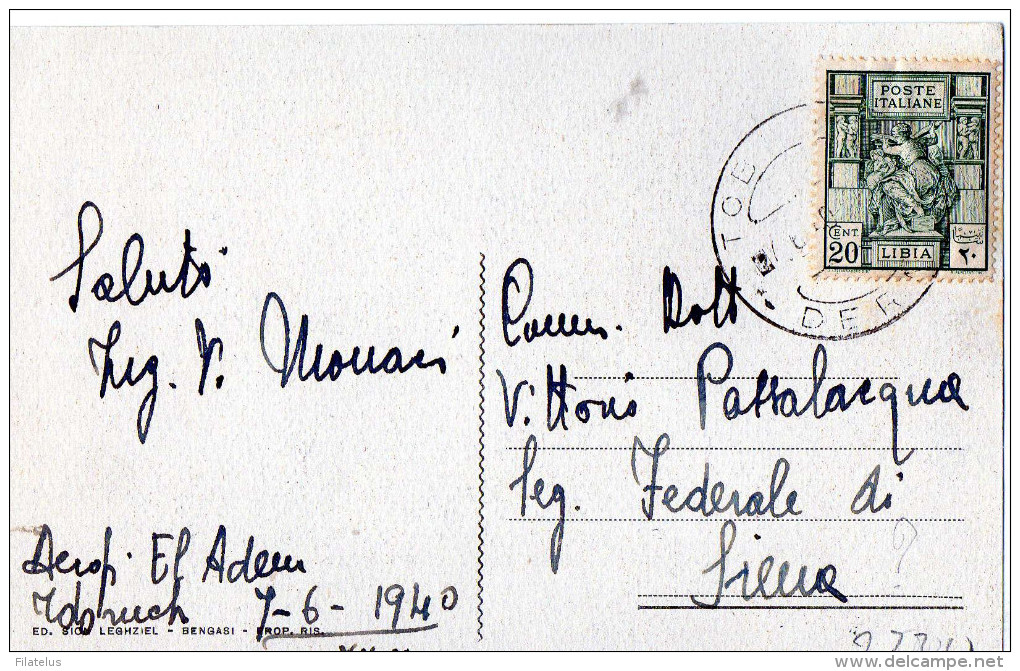 POSTE
ITALIANE
CENT.
20
LIBIA
٢٠
TOB
DER
Saluti
Ing. V. Monaci
Comm. Dott
Vittorio Passalacqua
Seg. Federale di
Siena ?
Aerop. El Adem
Tobruch 7-6-1940
ED. SION LEGHZIEL - BENGASI - PROP. RIS.
Filatelus
delcampe.net